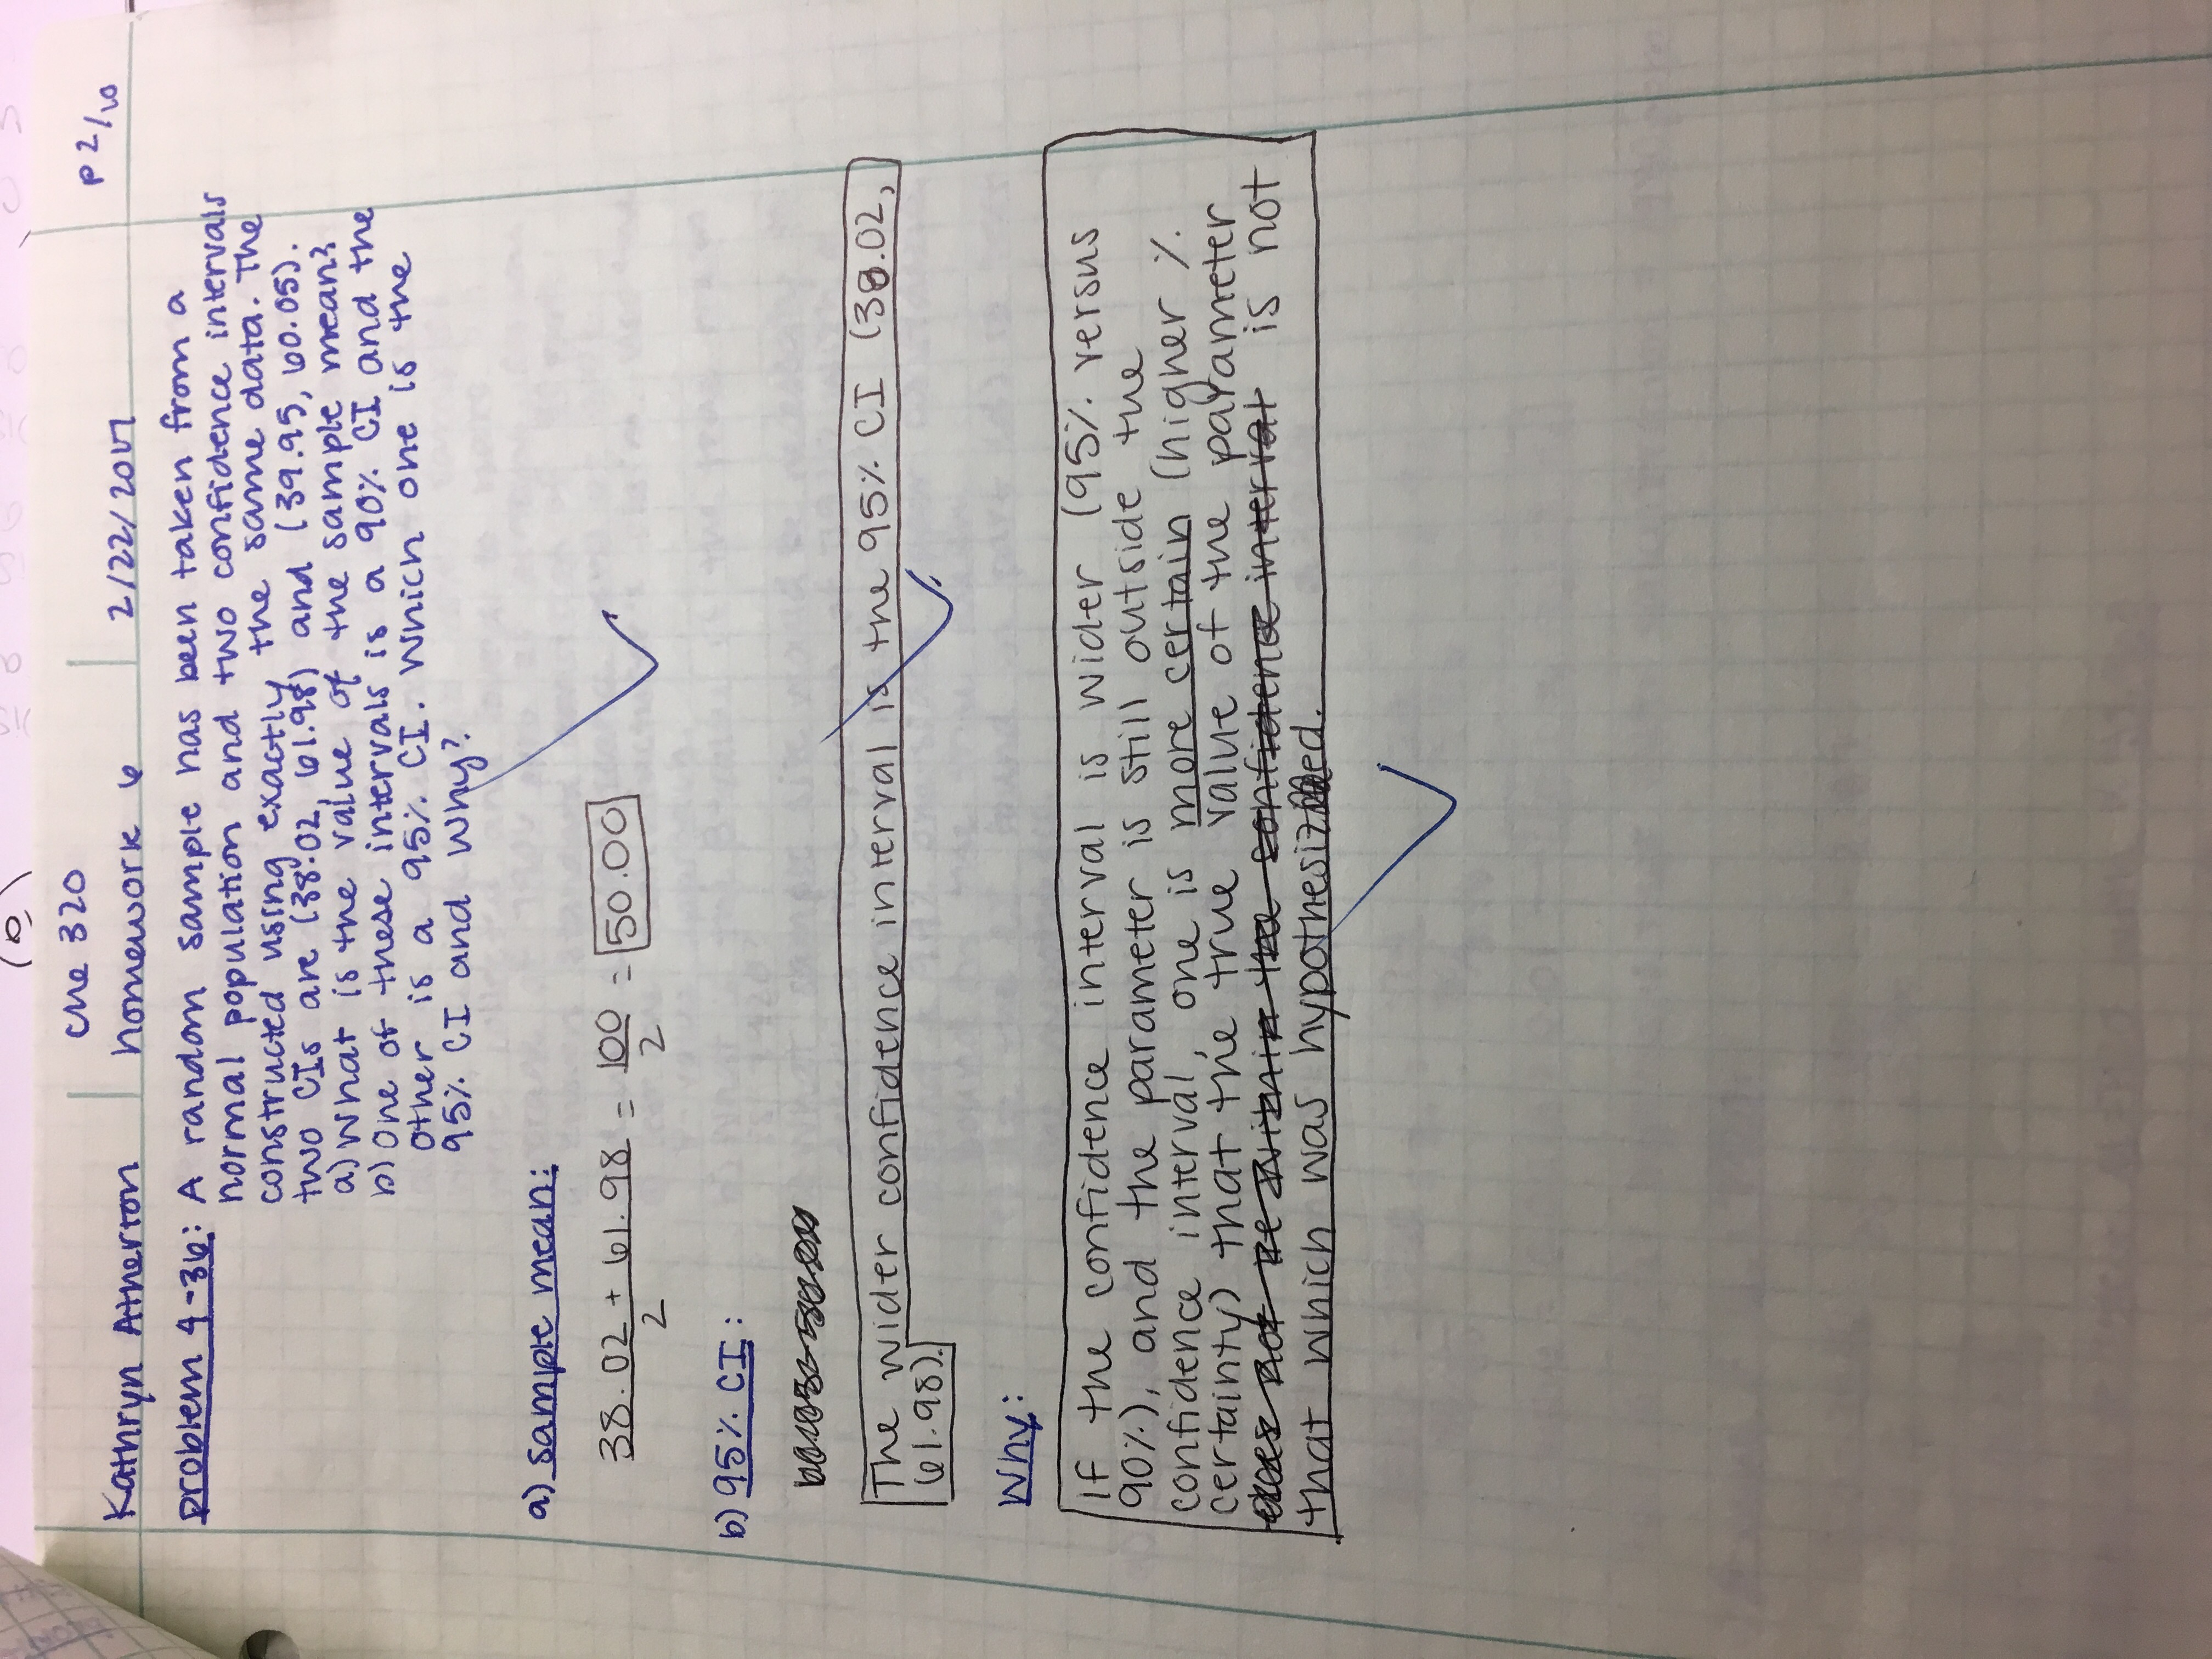 Che 320
Kathryn Atherton
homework 6
2/22/2017
P 2/10
problem 4-36: A random sample has been taken from a
normal population and two confidence intervals
constructed using exactly the same data. The
two CIs are (38.02, 61.98) and (39.95, 60.05).
a) What is the value of the sample mean?
b) One of these intervals is a 90% CI and the
other is a 95% CI. Which one is the
95% CI and Why?
a) sample mean:
38.02 + 61.98 / 2 = 100 / 2 = 50.00
b) 95% CI:
The wider confidence interval is the 95% CI (38.02,
61.98).
Why:
If the confidence interval is wider (95% versus
90%), and the parameter is still outside the
confidence interval, one is more certain (higher %
certainty) that the true value of the parameter
does not be within the confidence interval is not
that which was hypothesized.